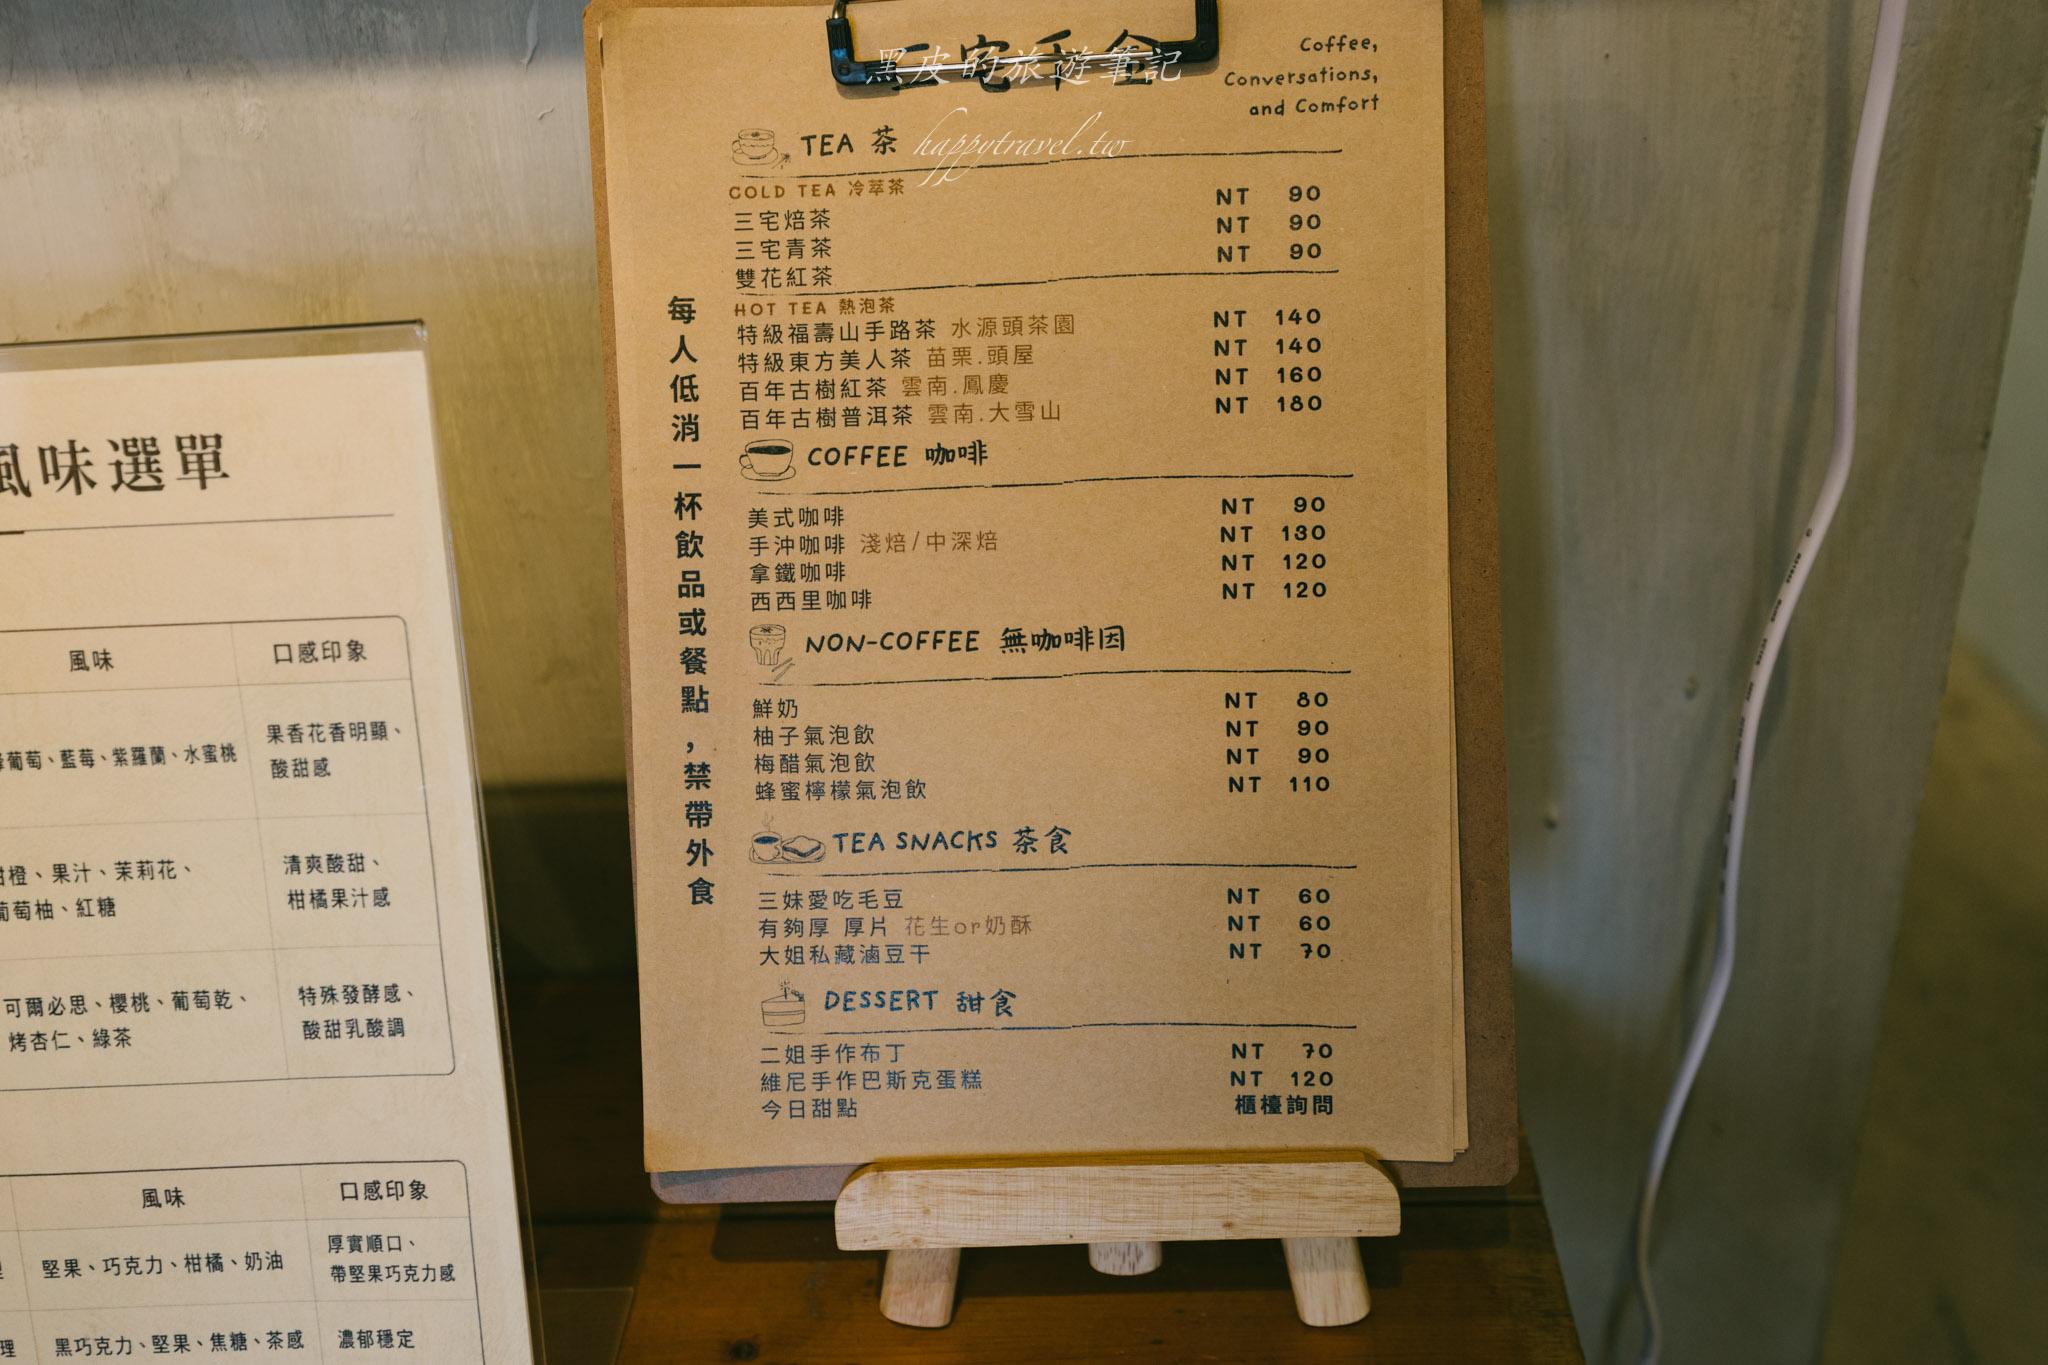 黑皮的旅遊筆記
happytravel.tw
Coffee,
Conversations,
and Comfort
TEA 茶
COLD TEA 冷萃茶
三宅焙茶 NT 90
三宅青茶 NT 90
雙花紅茶 NT 90
HOT TEA 熱泡茶
特級福壽山手路茶 水源頭茶園 NT 140
特級東方美人茶 苗栗.頭屋 NT 140
百年古樹紅茶 雲南.鳳慶 NT 160
百年古樹普洱茶 雲南.大雪山 NT 180
COFFEE 咖啡
美式咖啡 NT 90
手沖咖啡 淺焙/中深焙 NT 130
拿鐵咖啡 NT 120
西西里咖啡 NT 120
NON-COFFEE 無咖啡因
鮮奶 NT 80
柚子氣泡飲 NT 90
梅醋氣泡飲 NT 90
蜂蜜檸檬氣泡飲 NT 110
TEA SNACKS 茶食
三妹愛吃毛豆 NT 60
有夠厚 厚片 花生or奶酥 NT 60
大姐私藏滷豆干 NT 70
DESSERT 甜食
二姐手作布丁 NT 70
維尼手作巴斯克蛋糕 NT 120
今日甜點 櫃檯詢問
每人低消一杯飲品或餐點，禁帶外食
風味選單
風味 口感印象
葡萄、藍莓、紫羅蘭、水蜜桃
果香花香明顯、
酸甜感
橙、果汁、茉莉花、
葡萄柚、紅糖
清爽酸甜、
柑橘果汁感
可爾必思、櫻桃、葡萄乾、
烤杏仁、綠茶
特殊發酵感、
酸甜乳酸調
風味 口感印象
堅果、巧克力、柑橘、奶油
厚實順口、
帶堅果巧克力感
理 黑巧克力、堅果、焦糖、茶感 濃郁穩定